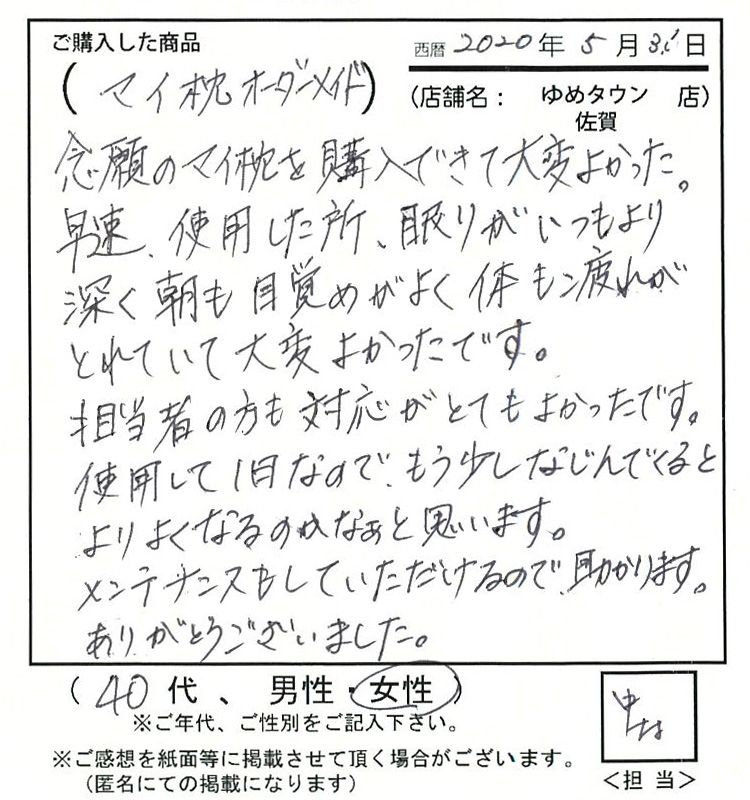 ご購入した商品
西暦 2020年 5月 31日
(マイ枕オーダーメイド)
(店舗名： ゆめタウン 店)
佐賀
念願のマイ枕を購入できて大変よかった。
早速、使用した所、眠りがいつもより
深く朝も目覚めがよく体も疲れが
とれていて大変よかったです。
担当者の方も対応がとてもよかったです。
使用して1日なので、もう少しなじんでくると
よりよくなるのかなぁと思います。
メンテナンスもしていただけるので、助かります。
ありがとうございました。
( 40 代 、 男性・女性 )
※ご年代、ご性別をご記入下さい。
※ご感想を紙面等に掲載させて頂く場合がございます。
(匿名にての掲載になります)
＜担 当＞